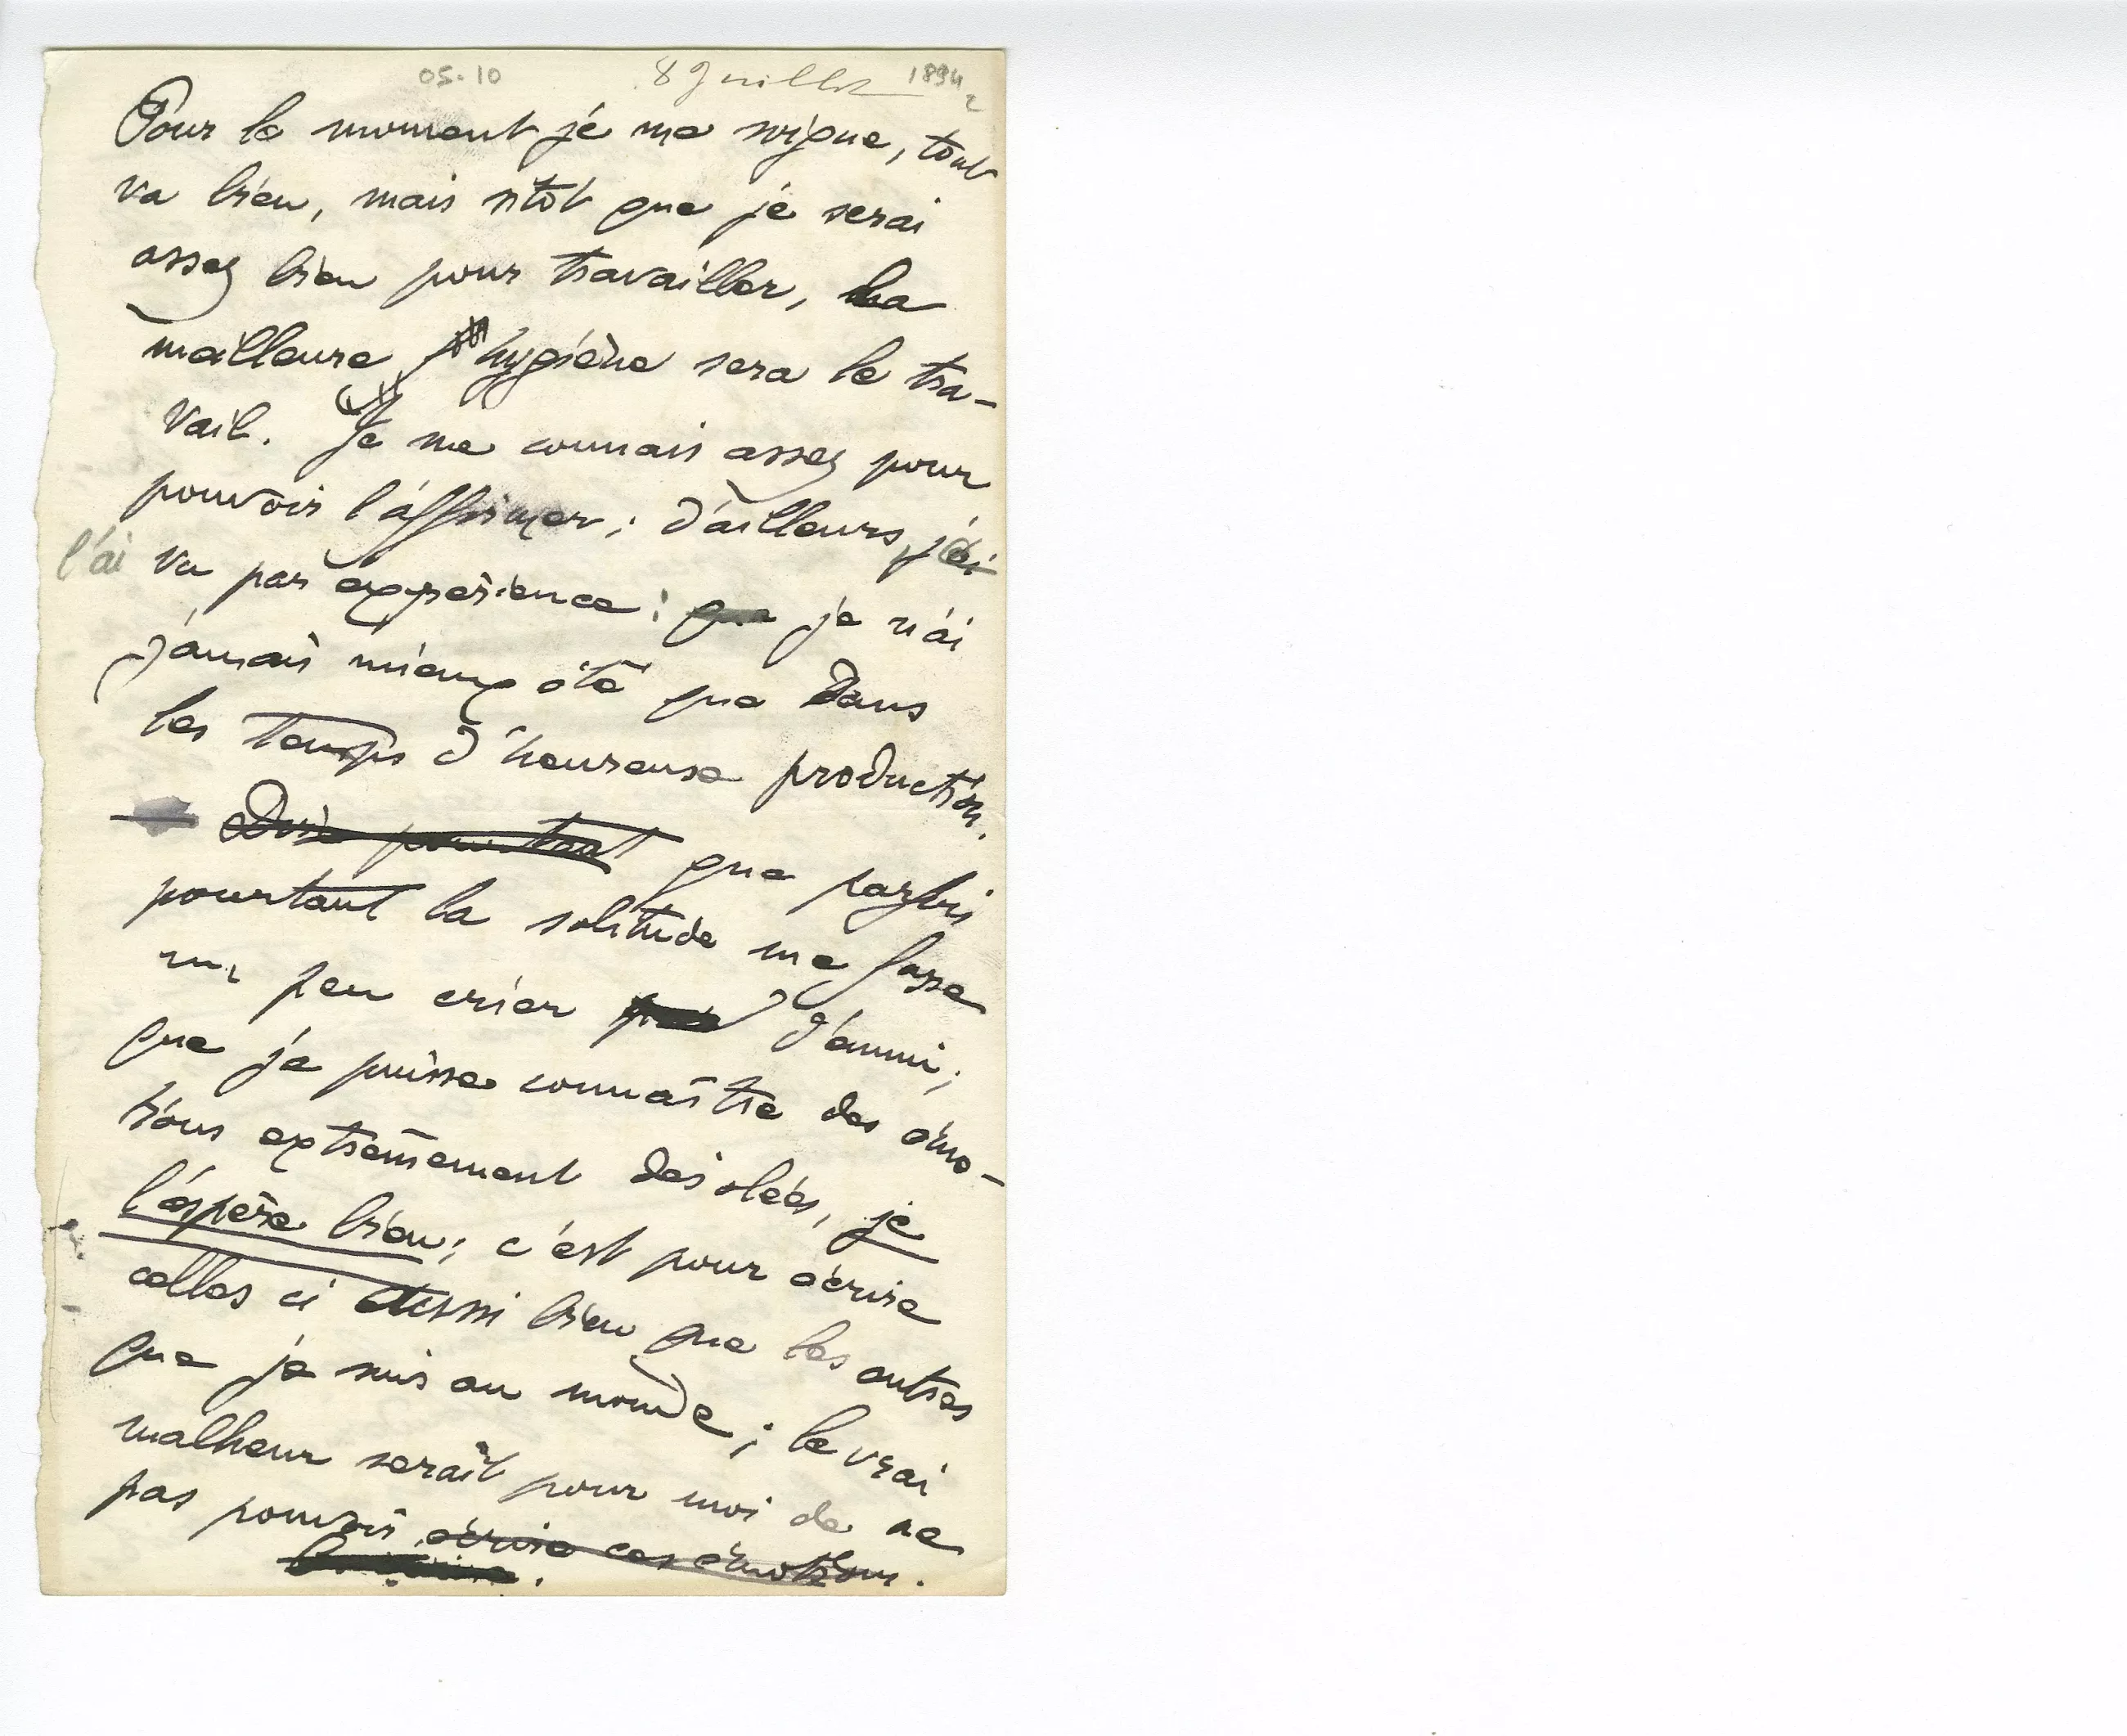 05.10 8 Juillet 1894
2
Pour le moment je me soigne, tout
va bien, mais sitôt que je serai
assez bien pour travailler, la
meilleure hygiène sera le tra-
vail. Je me connais assez pour
pouvoir l'affirmer ; d'ailleurs, j'ai
l'ai vu par expérience : que je n'ai
jamais mieux été que dans
les temps d'heureuse production.
pourtant que parfois
pourtant la solitude me fasse
un peu crier d'ennui ;
que je puisse connaître des émo-
tions extrêmement désolées, je
l'espère bien ; c'est pour écrire
celles ci aussi bien que les autres
que je suis au monde ; le vrai
malheur serait pour moi de ne
pas pouvoir écrire ces émotions.